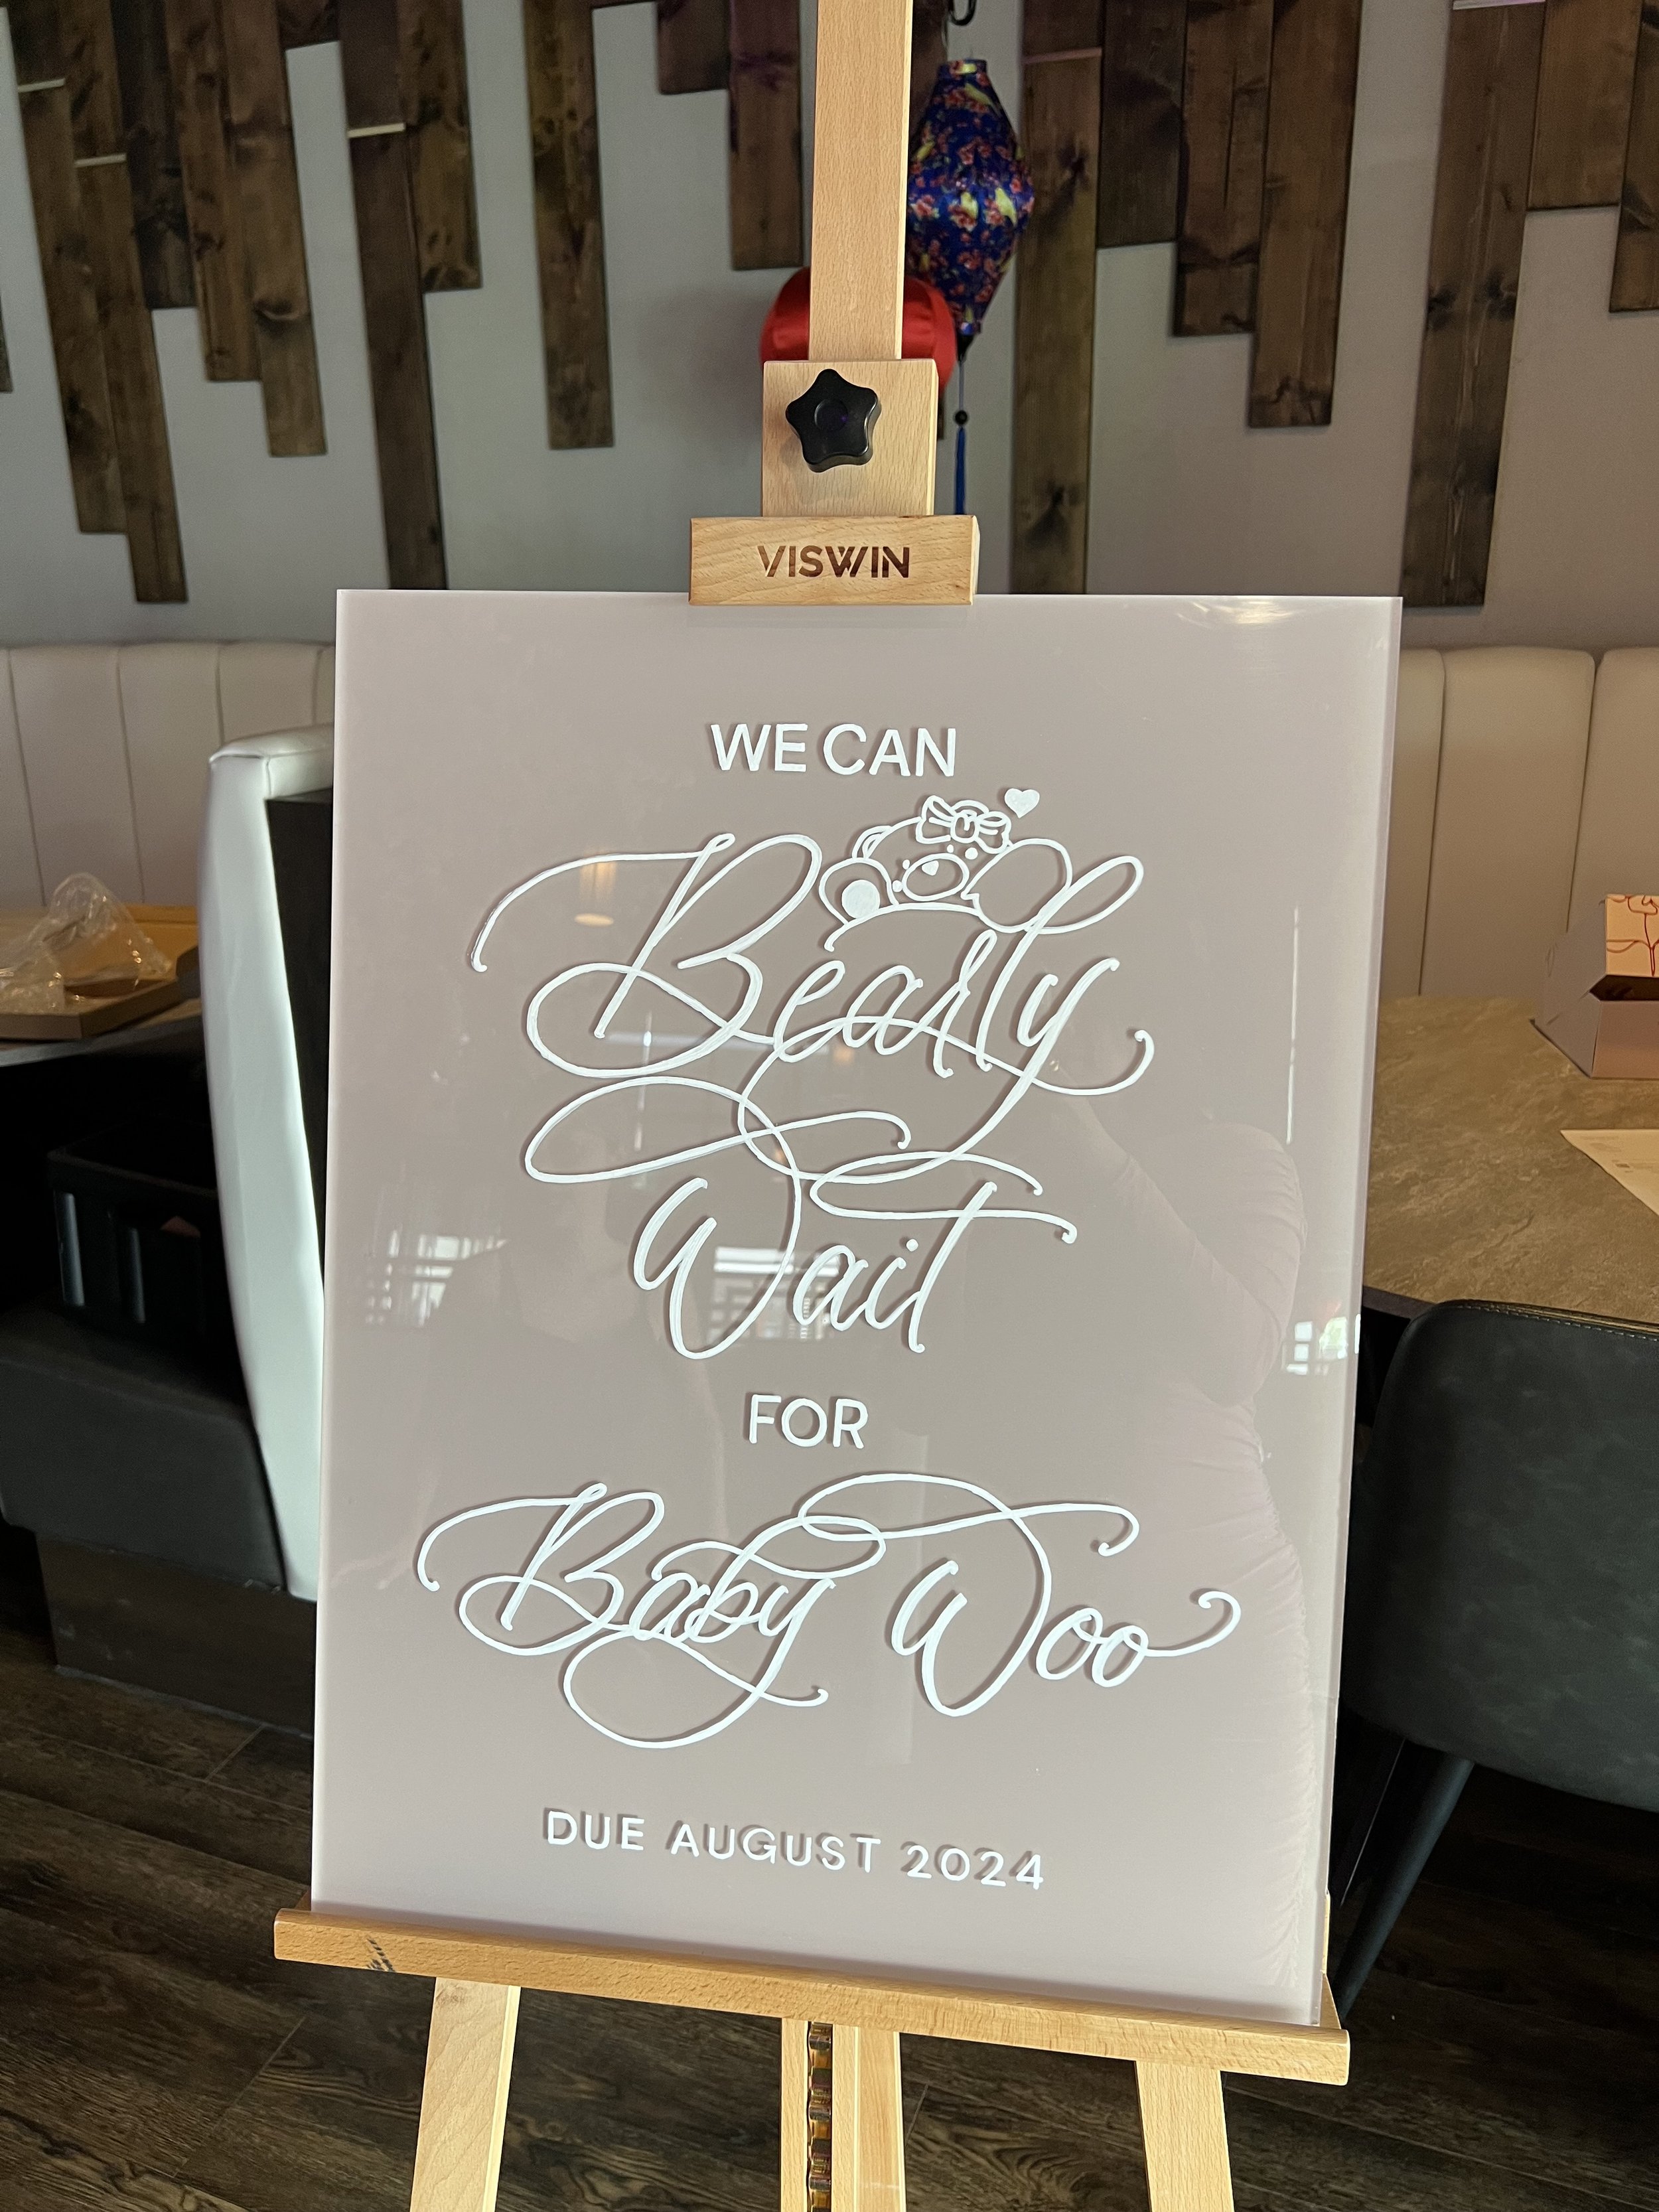 VISWIN
WE CAN
Bearly
Wait
FOR
Baby Woo
DUE AUGUST 2024